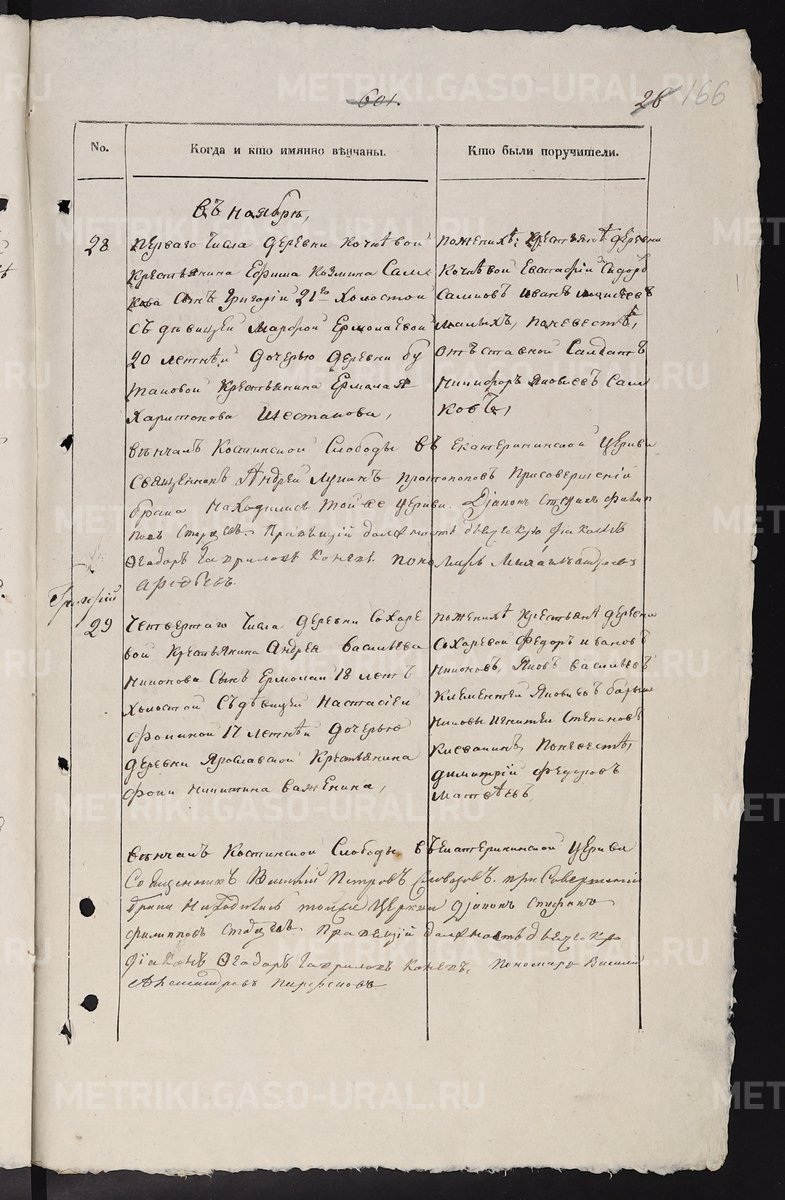 601.
26 166
No.
Когда и кто имянно вѣнчаны.
Кто были поручители.
Въ ноябрѣ,
28
перваго числа деревни Кочнѣвой
крестьянина Ефима Козмина Сал
кова сынъ Григорій 21го холостой
съ дѣвицей Марѳой Ермолаевой
20 летнѣй дочерью деревни Бу
тановой крестьянина Ермолая
Харитонова Шестакова,
по женихѣ: крестьянѣ деревни
Кочнѣвой Евстафій Сидоръ
Салковъ Иванъ
Малыхъ, по невестѣ,
отъставной салдатъ
Никифоръ Яковлевъ Сал
ковъ,
вѣнчалъ Костинской Слободы въ Екатерининской церкви
священникъ Андрей Лукинъ Протопоповъ при совершеніи
брака находились тойже церкви Діаконъ Стефанъ Филип
повъ Старцевъ. Правящій должность дьяческую діаконъ
Ѳеодоръ Гаврилов Конев. Поно марь Михаилъ
Григорій
29
Четвертаго числа деревни Сохаре
вой крестьянина Андрея Васильева
Никонова сынъ Ермолай 18 летъ
холостой съ дѣвицей Настасіей
Фоминой 17 летнѣй дочерью
деревни Ярославской крестьянина
Фоми Никитина Важенина,
по женихѣ крестьянѣ деревни
Сохаревой Федоръ Ивановъ
Никоновъ, Яковъ Васильевъ
Клементей Яковлевъ
Игнатей Степановъ
по невестѣ,
Димитрій Федоровъ
Матвѣевъ
вѣнчалъ Костинской Слободы въ Екатерининской церкви
Священникъ Василій Петровъ Словцовъ. при Совершеніи
брака находились тойже Церкви Діаконъ Стефанъ
Филипповъ Старцевъ Правящій должность дьяческую
діаконъ Ѳеодоръ Гаврилов Конев. Пономарь Василій
Александровъ Парфеновъ
METRIKI.GASO-URAL.RU